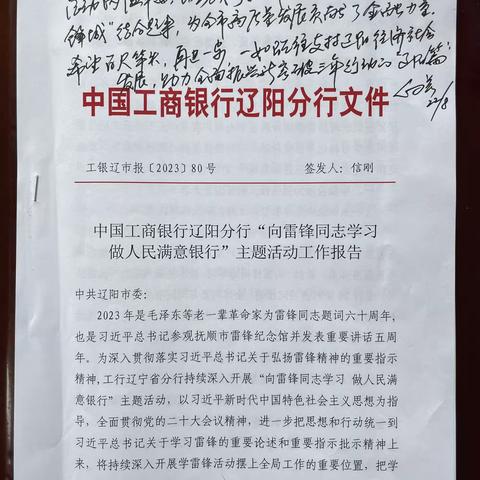 锋城”结合起来，为全市高质量发展贡献了金融力量。
希望百尺竿头，再进一步，一如既往支持辽阳经济社会
发展，助力全面振兴新突破三年行动的
中国工商银行辽阳分行文件
工银辽市报〔2023〕80号 签发人：信刚
中国工商银行辽阳分行“向雷锋同志学习
做人民满意银行”主题活动工作报告
中共辽阳市委：
2023年是毛泽东等老一辈革命家为雷锋同志题词六十周年，
也是习近平总书记参观抚顺市雷锋纪念馆并发表重要讲话五周
年。为深入贯彻落实习近平总书记关于弘扬雷锋精神的重要指示
精神，工行辽宁省分行持续深入开展“向雷锋同志学习 做人民满
意银行”主题活动，以习近平新时代中国特色社会主义思想为指
导，全面贯彻党的二十大会议精神，进一步把思想和行动统一到
习近平总书记关于学习雷锋的重要论述和重要指示批示精神上
来，将持续深入开展学雷锋活动摆上全局工作的重要位置，把学